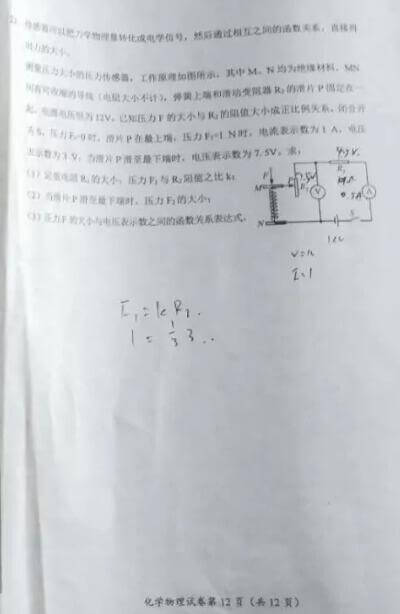 传感器可以把力学物理量转化成电学信号，然后通过相互之间的函数关系，直接得
出力的大小。
测量压力大小的压力传感器，工作原理如图所示，其中M、N均为绝缘材料，MN
间有可收缩的导线（电阻大小不计），弹簧上端和滑动变阻器R₂的滑片P固定在一
起，电源电压恒为12V，已知压力F的大小与R₂的阻值大小成正比例关系。闭合开
关S，压力F₀=0时，滑片P在最上端，压力F₁=1N时，电流表示数为1A，电压
表示数为3V，当滑片P滑至最下端时，电压表示数为7.5V。求：
（1）定值电阻R₁的大小，压力F₁与R₂阻值之比k；
（2）当滑片P滑至最下端时，压力F₂的大小；
（3）压力F的大小与电压表示数之间的函数关系表达式。
F
M
N
P
7.5V
R₁
V
A
S
12V
I=1
F₁=kR₂.
1=1/3 3
化学物理试卷第12页（共12页）